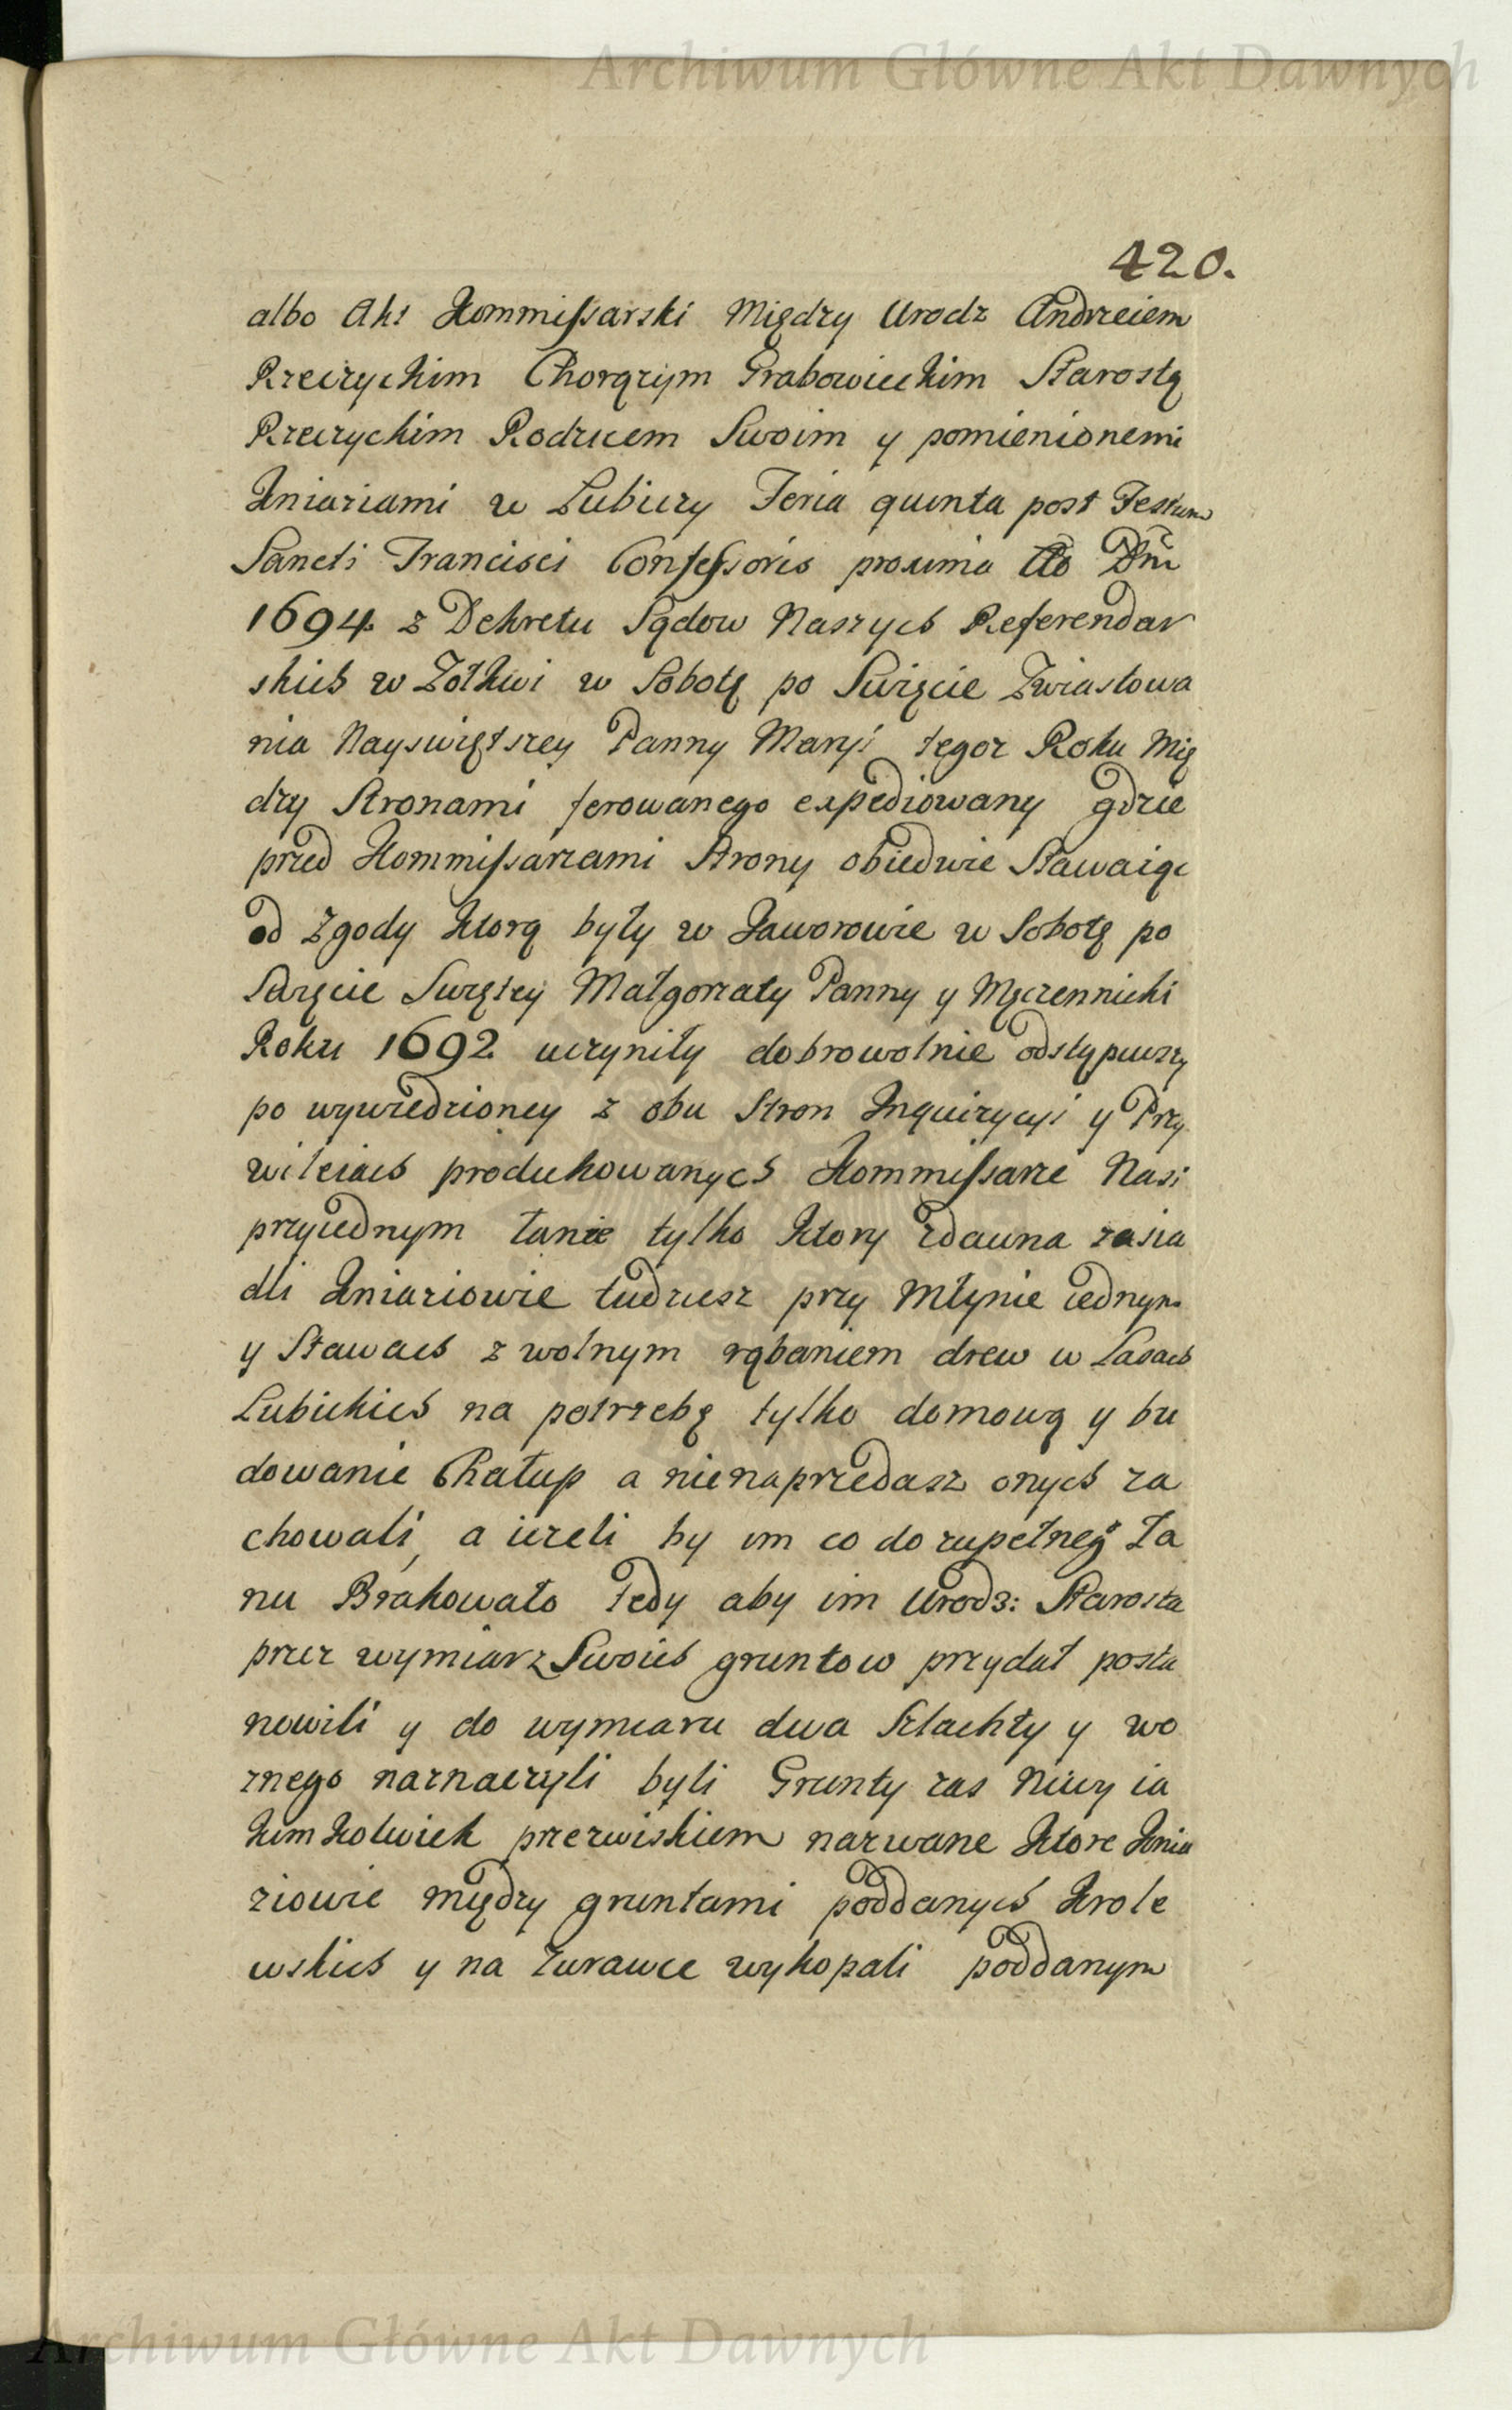 Archiwum Główne Akt Dawnych
420.
albo Akt Kommissarski Między Urodz Andrzeiem
Rzeczyckim Chorązym Grabowieckim Starostą
Rzeczyckim Rodzicem Swoim y pomienionemi
Kniaziami w Lubiczy Feria quinta post Festum
Sancti Francisci Confessoris proxima Ao Dni
1694. z Dekretu Sądow Naszych Referendar
skich w Zołkwi w Sobotę po Swięcie Zwiastowa
nia Nayswiętszey Panny Maryi tegoz Roku Mię
dzy Stronami ferowanego expediowany gdzie
przed Kommissarzami Strony obiedwie Stawaiąc
od Zgody ktorą były w Jaworowie w Sobotę po
Swięcie Swiętey Małgorzaty Panny y Męczennicki
Roku 1692 uczyniły dobrowolnie odstąpiwszy
po wywiedzioney z obu Stron Inquizycyi y Przy
wileiach produkowanych Kommissarze Nasi
przyiednym łanie tylko ktory zdawna zasia
dli Kniaziowie tudziesz przy Młynie iednym
y Stawach z wolnym rąbaniem drew w Lasach
Lubickich na potrzebę tylko domową y bu
dowanie Chałup a nienaprzedasz onych za
chowali, a iezeli by im co do zupełneg̊ Ła
nu Brakowało Tedy aby im Urodz: Starosta
przez wymiarz Swoich gruntow przydał posta
nowili y do wymiaru dwa Szlachty y wo
znego naznaczyli byli Grunty zas Niwy ia
kim kolwiek przezwiskiem nazwane ktore Knia
ziowie między gruntami poddanych Krole
wskich y na Zurawce wykopali poddanym
Archiwum Główne Akt Dawnych